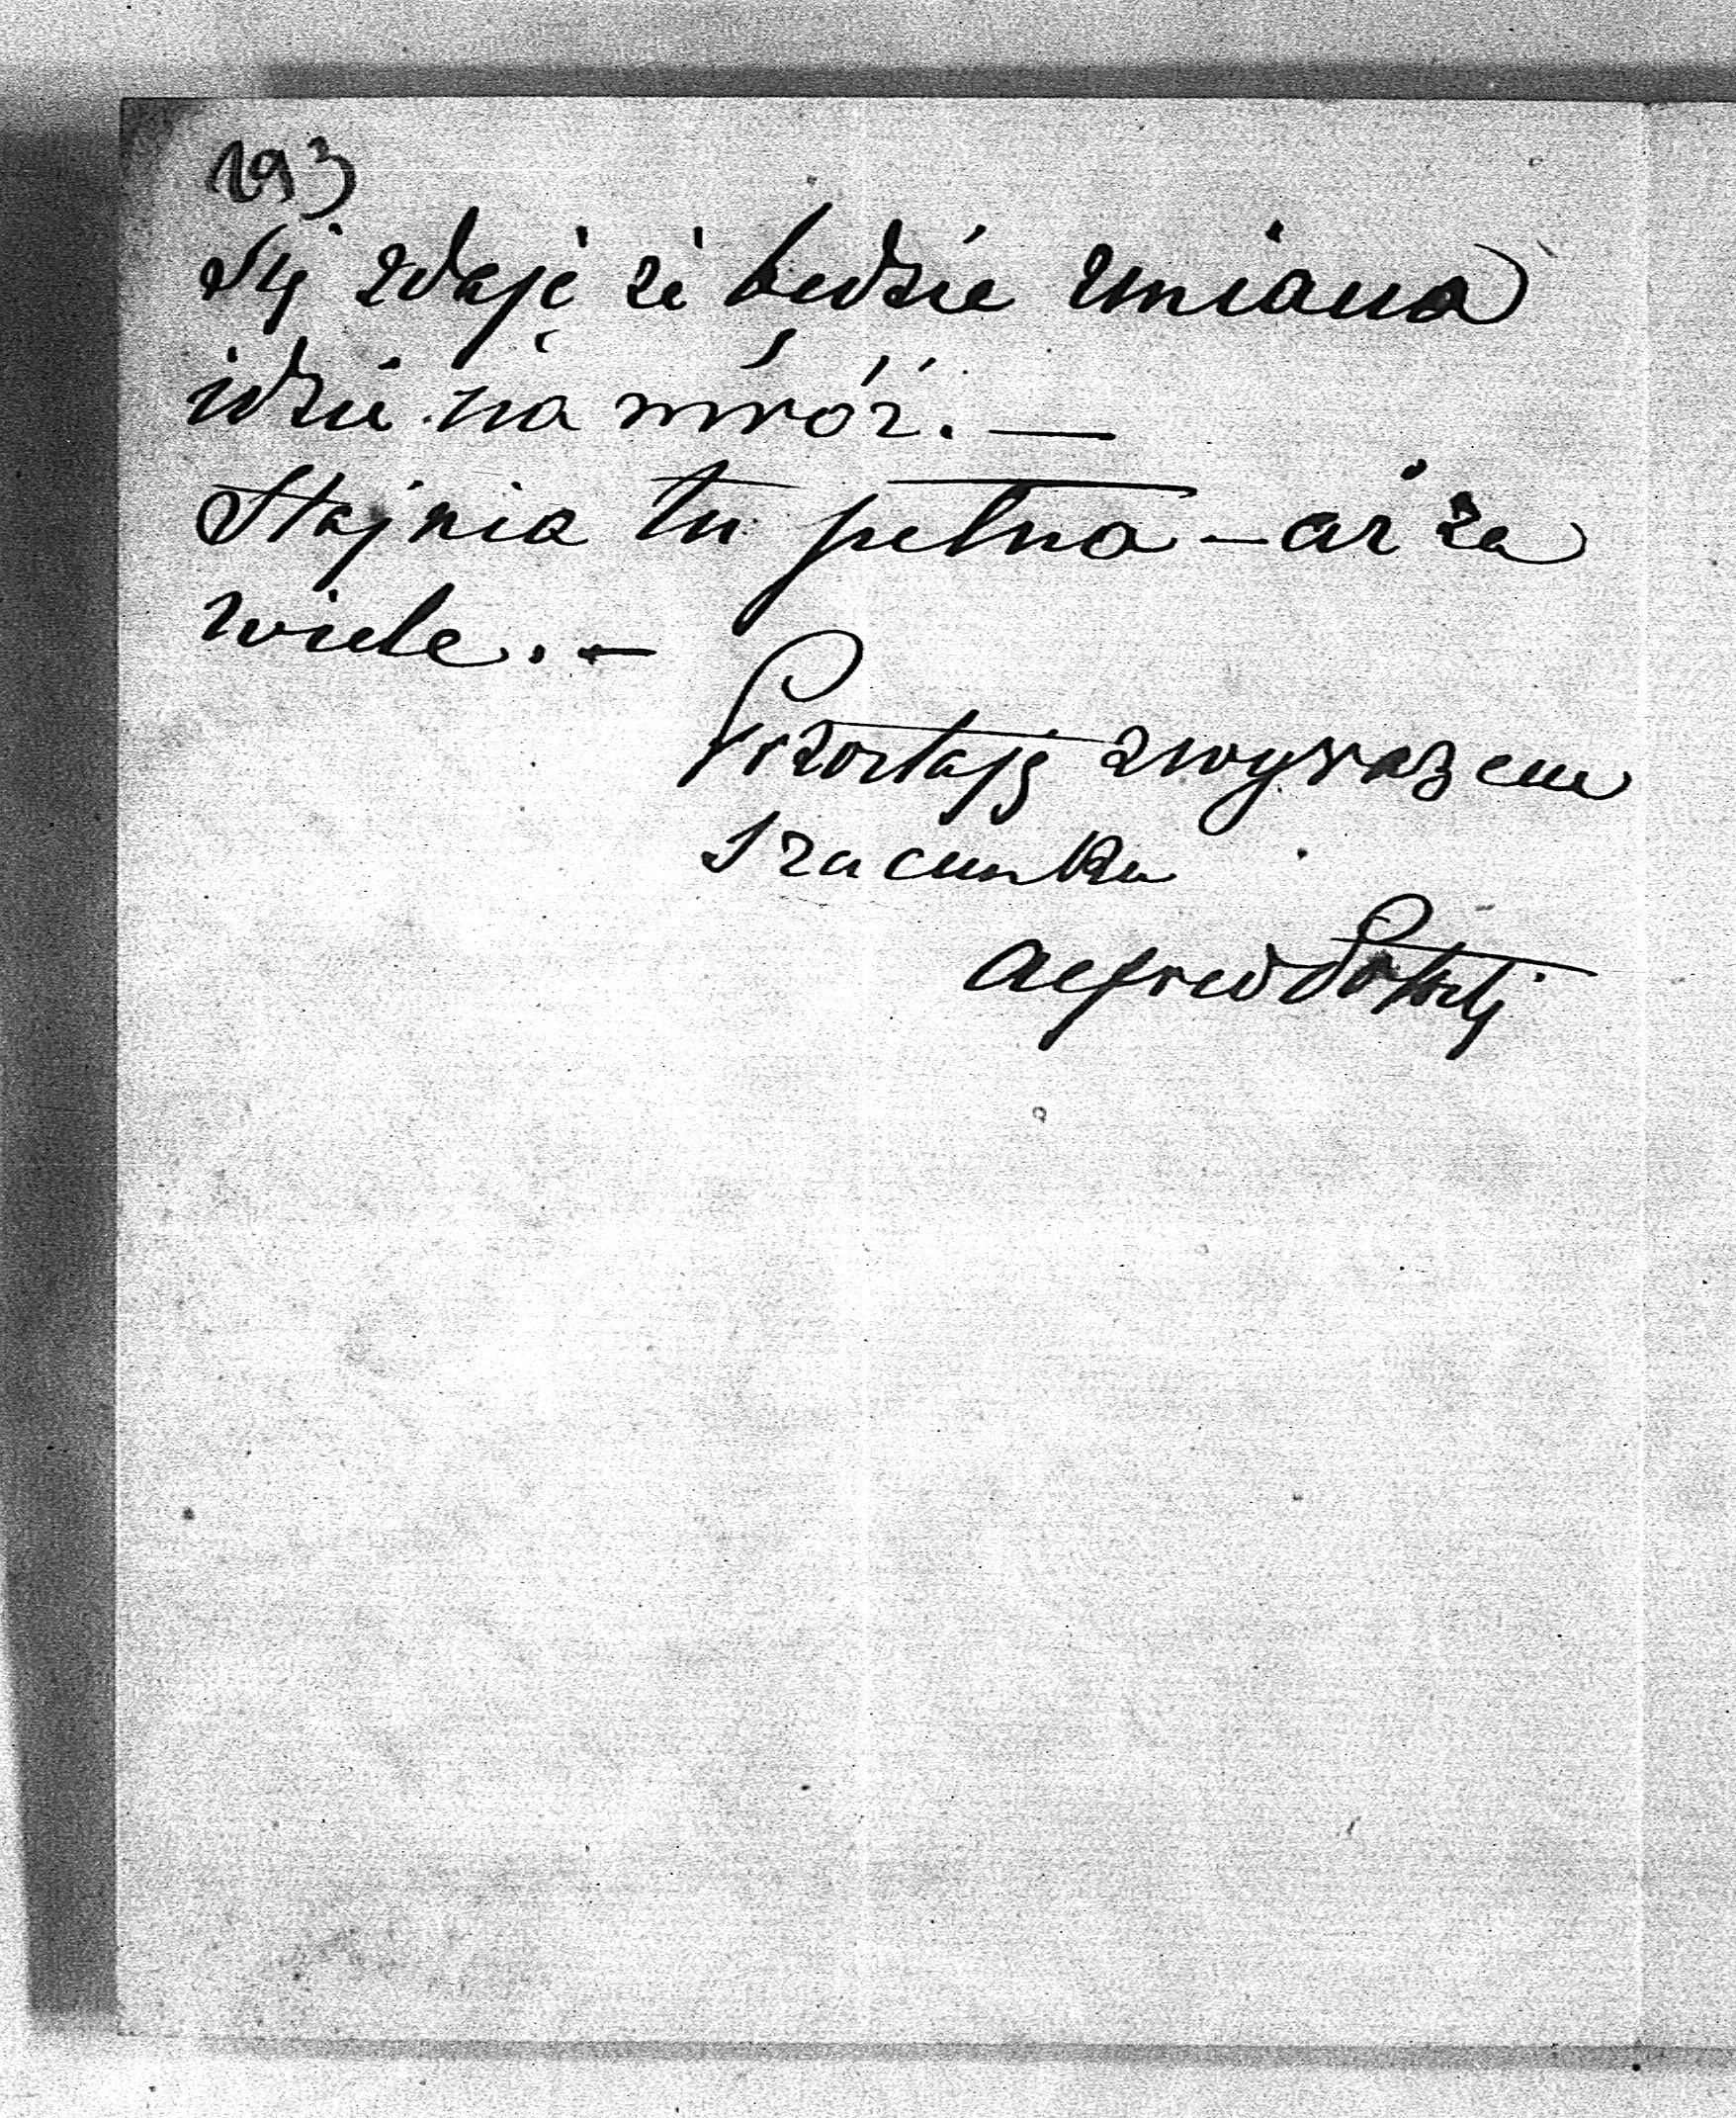 193
się zdaje że bedzie zmiana
idzie na mróz. —
Stajnia tu pełna – aż za
wiele. –
Pozostaję z wyrazem
szacunku
Alfred Potocki